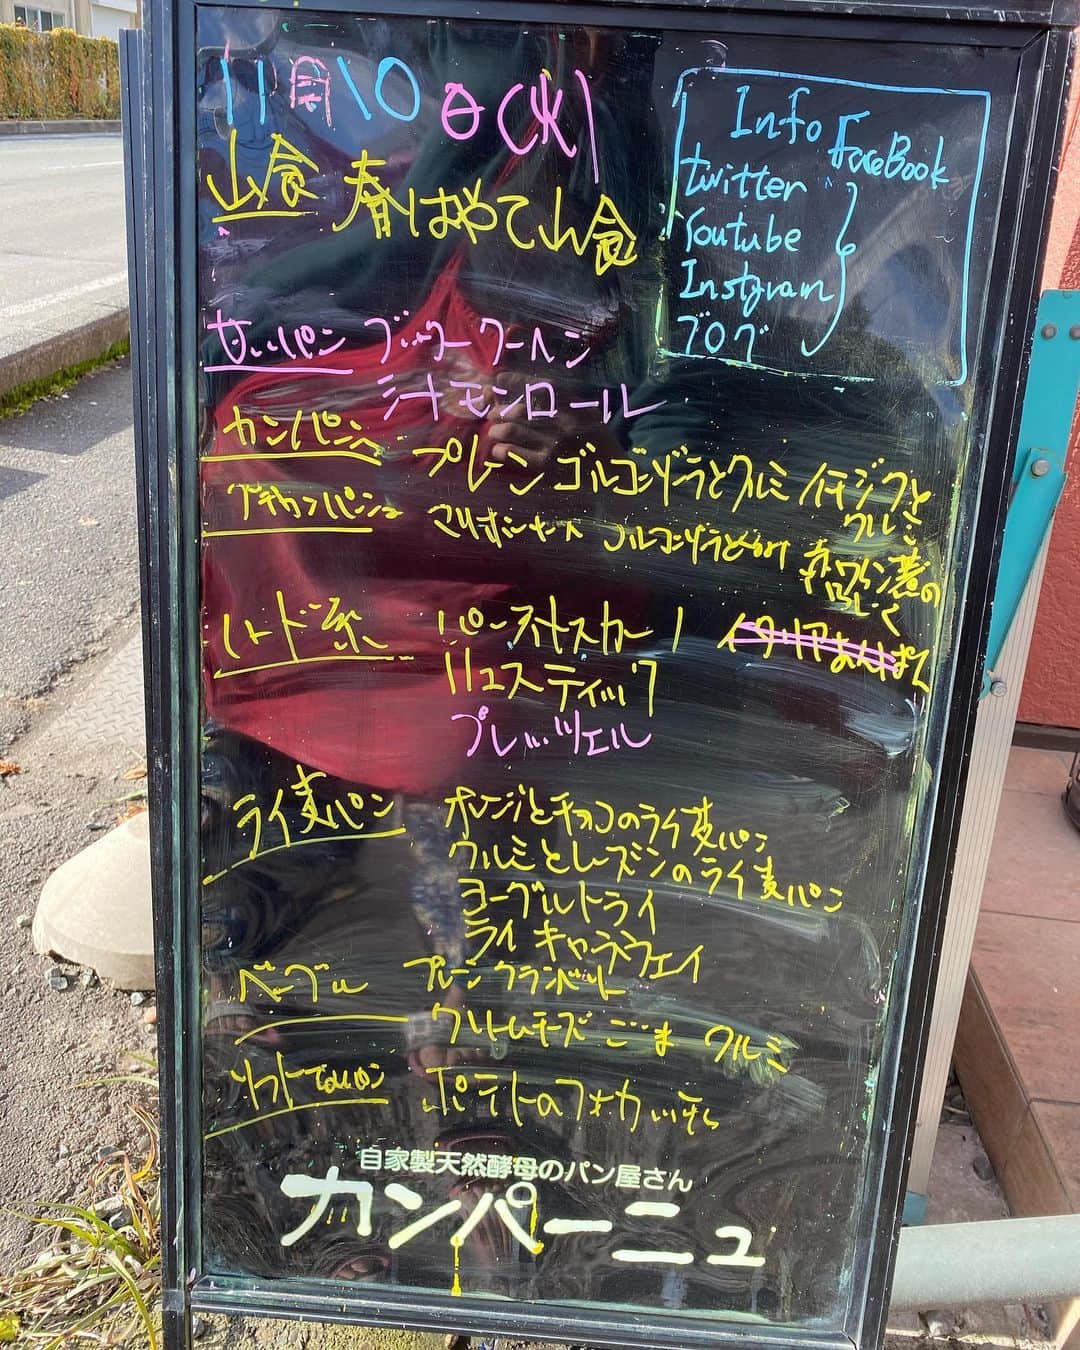 11月10日(火)
Info
FaceBook
twitter
Youtube
Instgram
ブログ
山食 春はやて山食
甘いパン ブッタークーヘン
シナモンロール
カンパーニュ プレーン ゴルゴンゾーラとクルミ イチジクと
クルミ
プチカンパーニュ ゴルゴンゾーラとクルミ 赤ワイン煮の
いちじく
ハード系 イタリアあんぱん
リュスティック
プレッツェル
ライ麦パン オレンジとチョコのライ麦パン
クルミとレーズンのライ麦パン
ヨーグルトライ
ライ キャラウェイ
ベーグル プレーン クランベリー
クリームチーズ ごま クルミ
ソフト ポテトのフォカッチャ
自家製天然酵母のパン屋さん
カンパーニュ